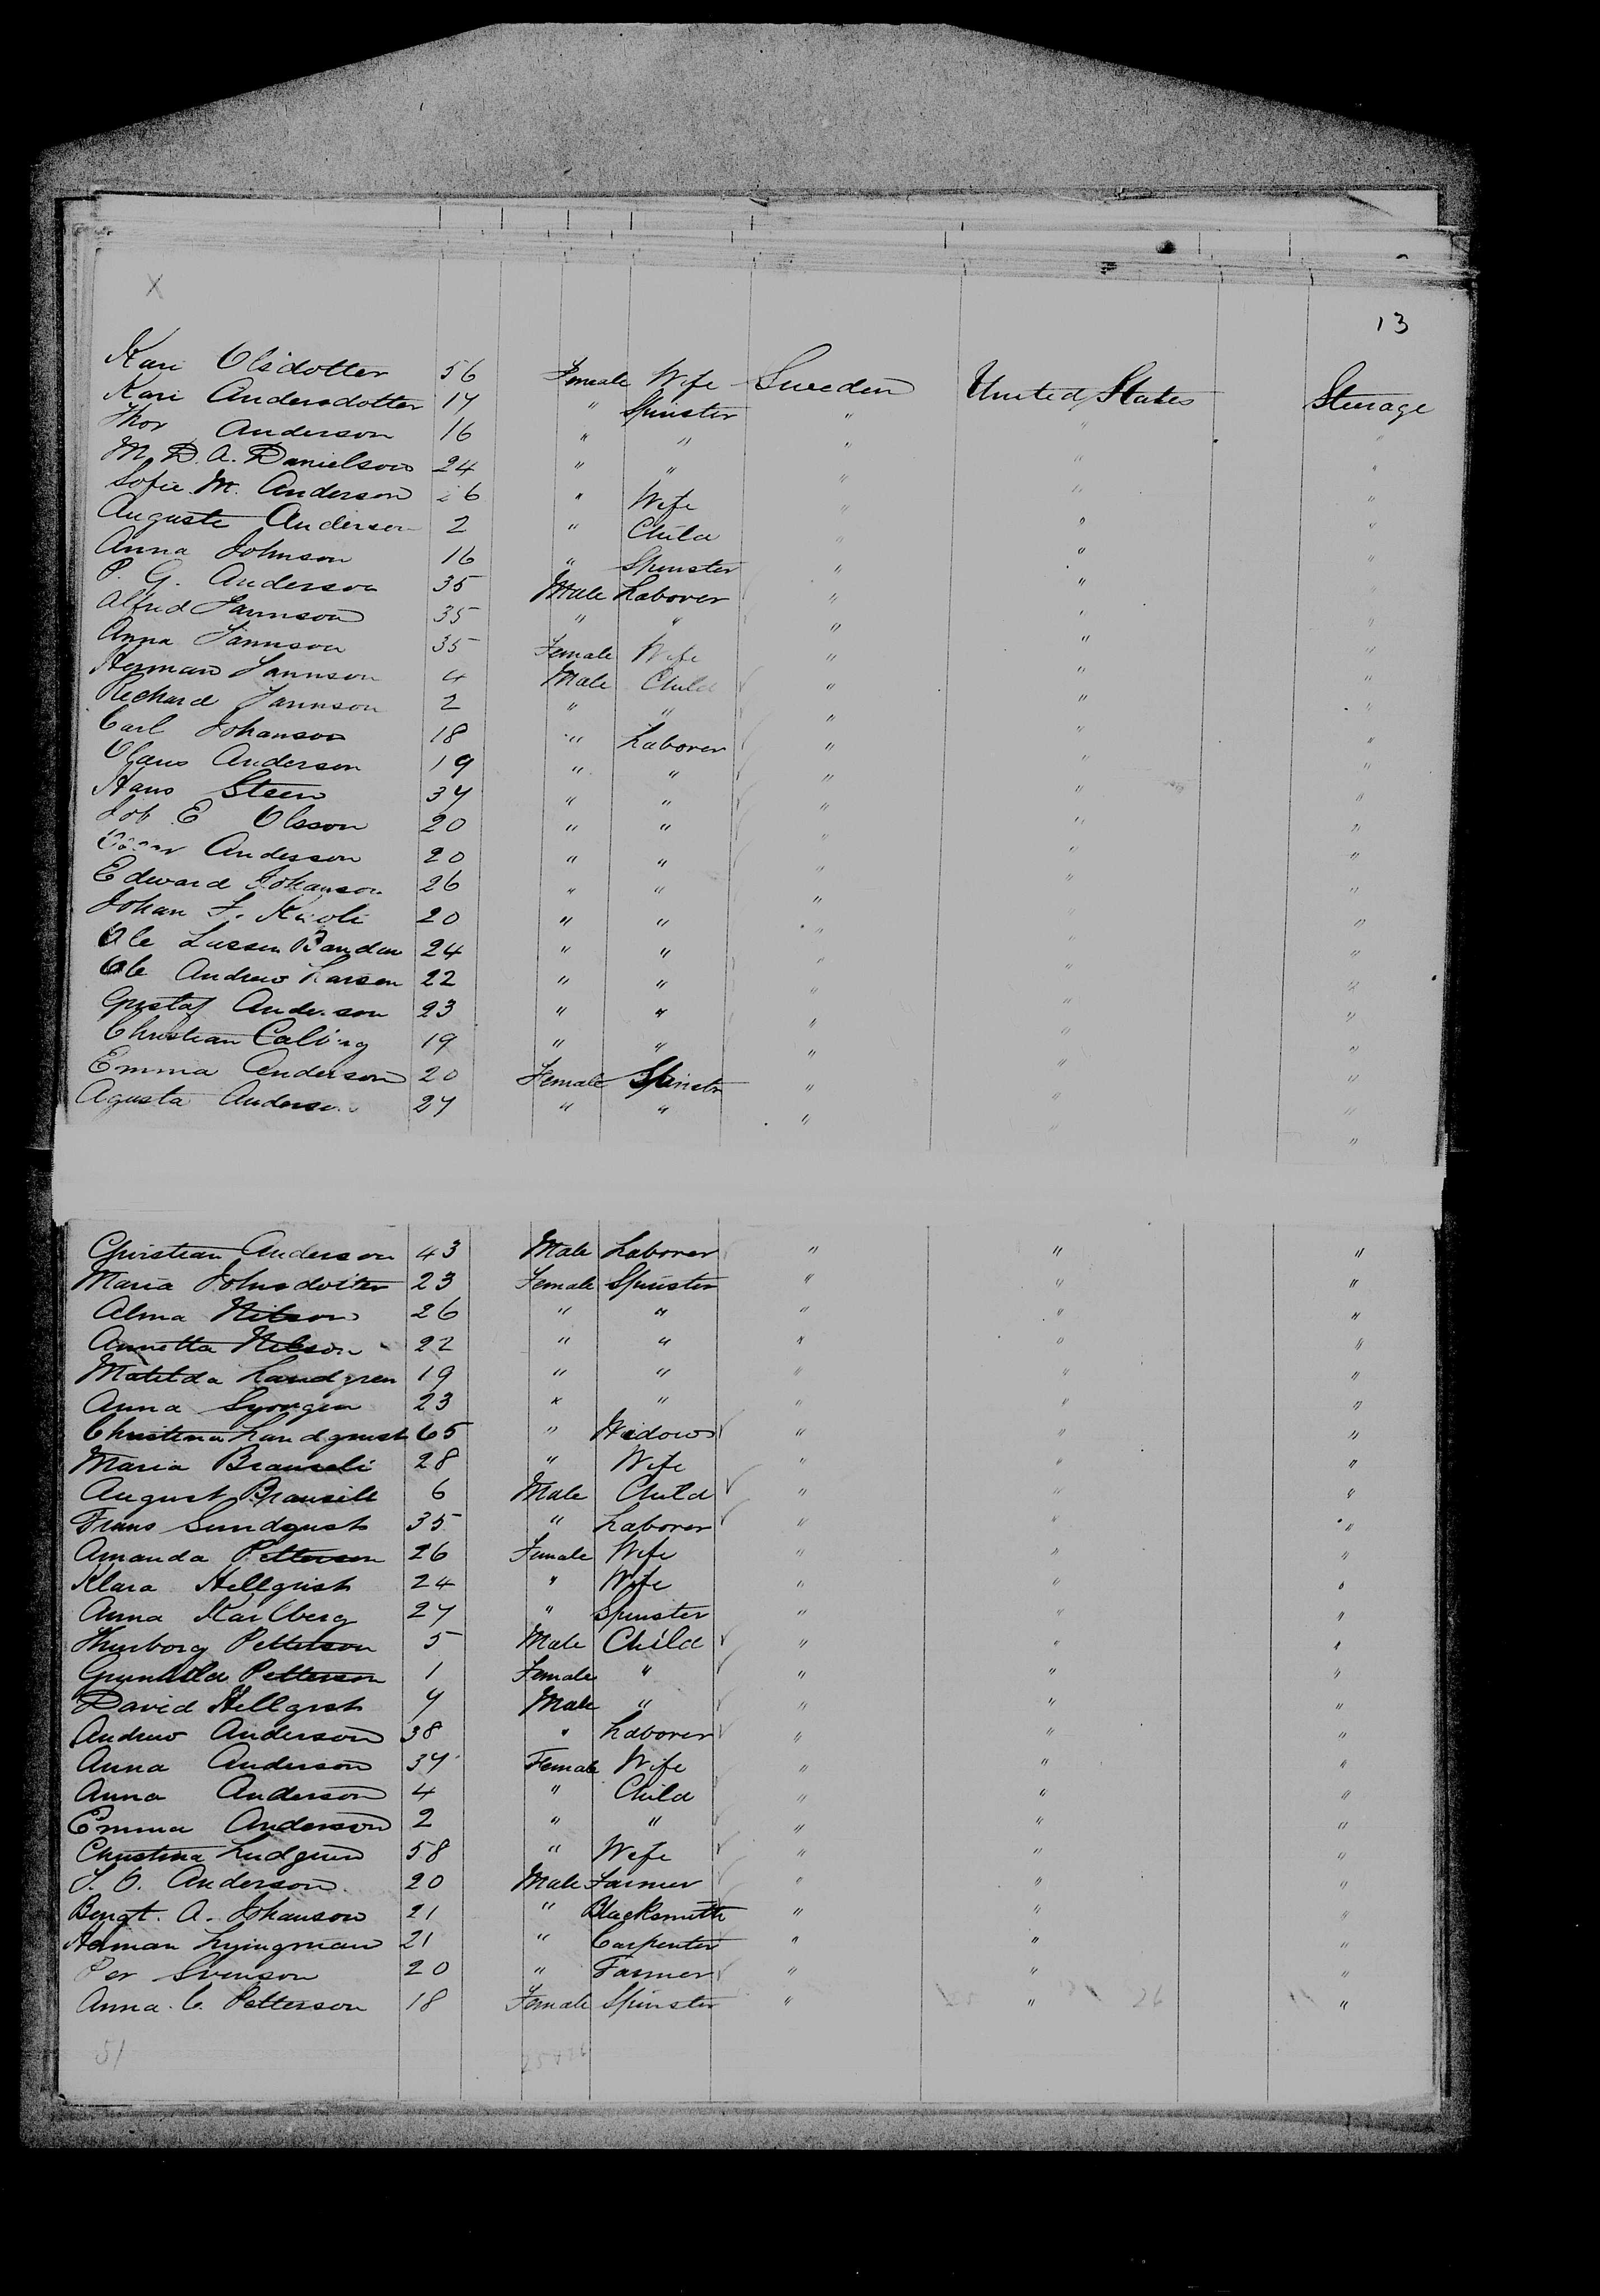 X
13
Kari Olsdotter 56 Female Wife Sweden United States Steerage
Kari Andersdotter 17 " Spinster " " "
Thor Anderson 16 " " " " "
M. D. A. Danielson 24 " " " " "
Sofie M. Anderson 26 " Wife " " "
Auguste Anderson 2 " Child " " "
Anna Johnson 16 " Spinster " " "
P. G. Anderson 35 Male Laborer " " "
Alfred Jannson 35 " " " " "
Anna Jannson 35 Female Wife " " "
Herman Jannson 4 Male Child " " "
Richard Jannson 2 " " " " "
Carl Johanson 18 " Laborer " " "
Olaus Anderson 19 " " " " "
Hans Steen 37 " " " " "
Joh E Olsson 20 " " " " "
Andersson 20 " " " " "
Edward Johanson 26 " " " " "
Johan F. 20 " " " " "
Ole Lassen 24 " " " " "
Ole Andrew Larsen 22 " " " " "
Gustaf Anderson 23 " " " " "
Christian 19 " " " " "
Emma Anderson 20 Female Spinstr " " "
Agusta Anderson 27 " " " " "
Christian Anderson 43 Male Laborer " " "
Maria Johnsdotter 23 Female Spinster " " "
Alma Nilson 26 " " " " "
Annetta Nelson 22 " " " " "
Matilda Landgren 19 " " " " "
Anna 23 " " " " "
Christina Landquist 65 " Widow " " "
Maria 28 " Wife " " "
August 6 Male Child " " "
Frans Sundqust 35 " Laborer " " "
Amanda Petterson 26 Female Wife " " "
Klara Hellquist 24 " Wife " " "
Anna Karlberg 27 " Spinster " " "
Thurborg Petterson 5 Male Child " " "
Gunnilda Petterson 1 Female " " " "
David Hellqvst 7 Male " " " "
Andrew Anderson 38 " Laborer " " "
Anna Anderson 37 Female Wife " " "
Anna Anderson 4 " Child " " "
Emma Anderson 2 " " " " "
Christina Ludgren 58 " Wife " " "
J. O. Anderson 20 Male Farmer " " "
Bengt. A. Johanson 21 " Blacksmith " " "
Herman Lyingman 21 " Carpenter " " "
Per Svenson 20 " Farmer " " "
Anna. C. Petterson 18 Female Spinster " " 26 "
51